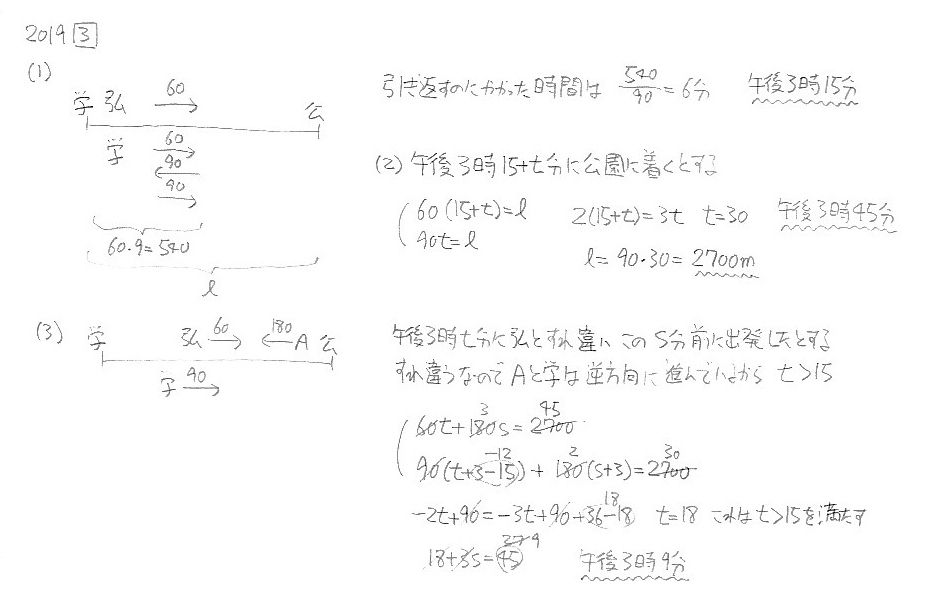 2019 3
(1)
学 弘 60 公
学 60
90
90
60・9=540
l
引き返すのにかかった時間は 540/90=6分 午後3時15分
(2) 午後3時15+t分に公園に着くとする
60(15+t)=l 2(15+t)=3t t=30 午後3時45分
90t=l
l=90・30=2700m
(3) 学 弘 60 180 A 公
学 90
午後3時t分に弘とすれ違い この s分前に出発したとする
すれ違うなので Aと学は逆方向に進んでいるから t>15
60t+180s=2700
3 45
90(t+3-15)+180(s+3)=2700
-12 2 30
-2t+90=-3t+90+36-18 t=18 これは t>15を満たす
18
18+3s=45
27 9
午後3時9分